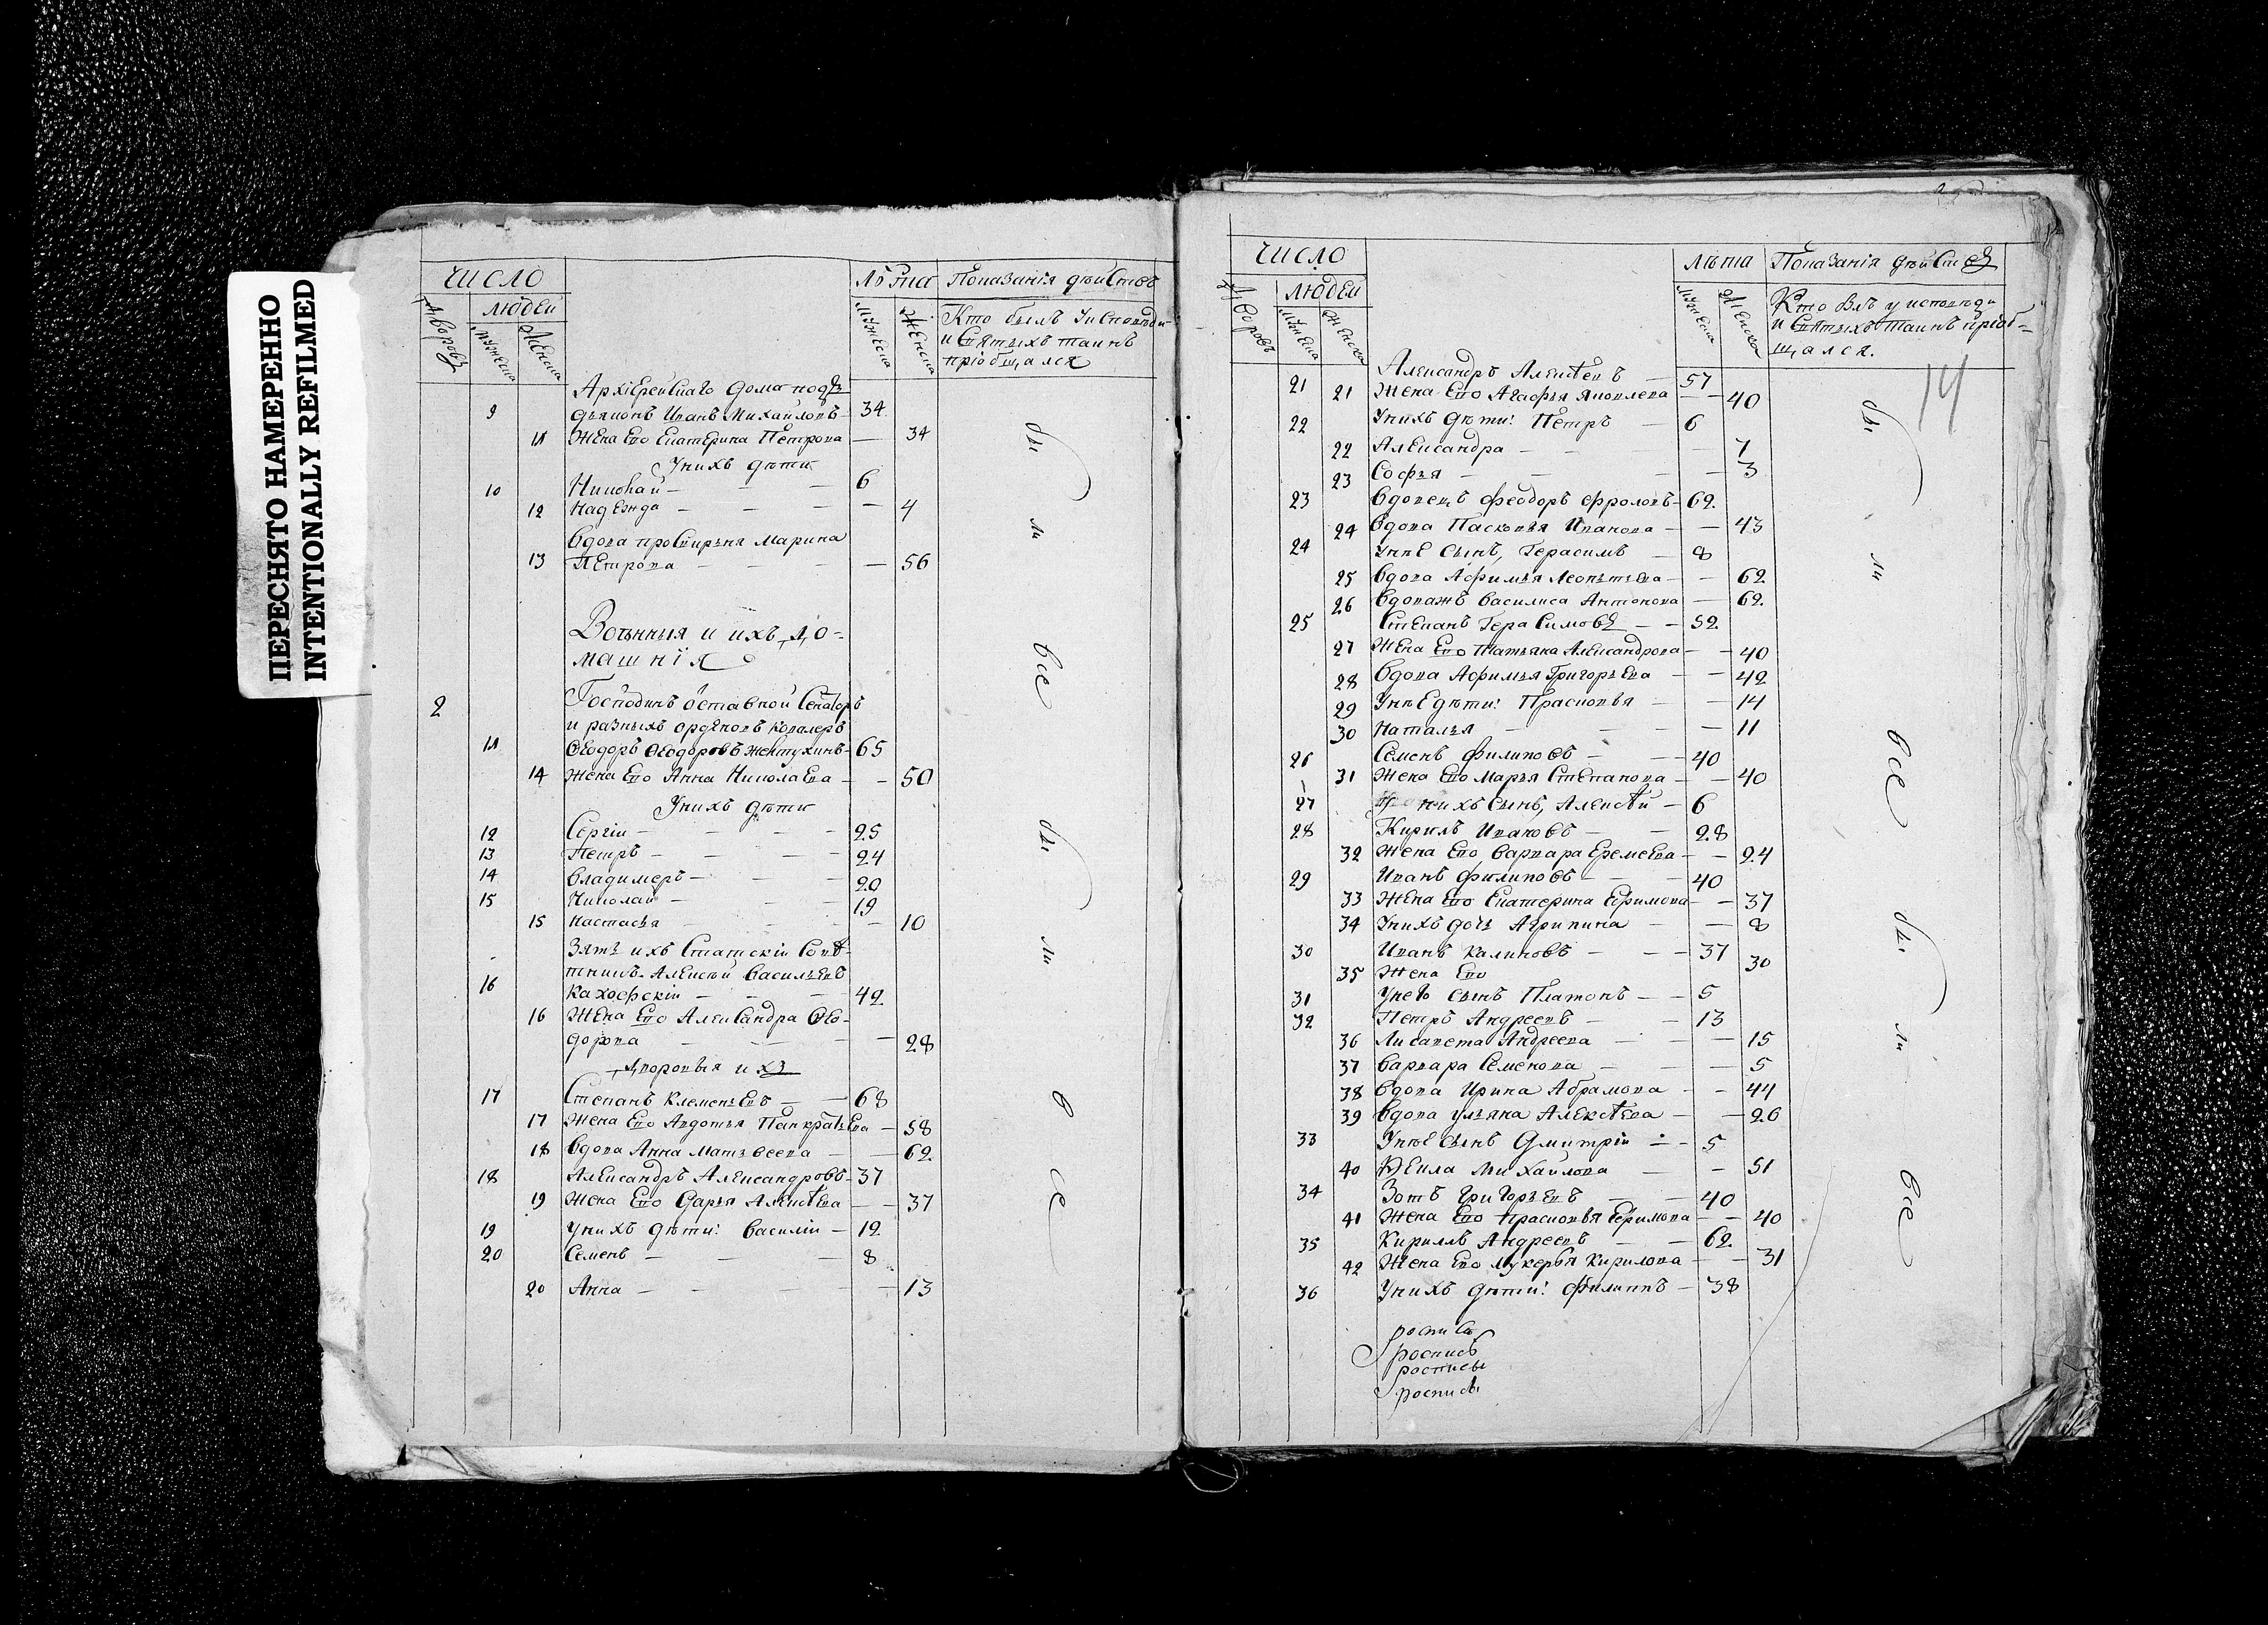 ПЕРЕСНЯТО НАМЕРЕННО
INTENTIONALLY REFILMED
ЧИСЛО
Лѣта Показанія дѣйствъ
Дворовъ
людей
мужеска
женска
мужеска
женска
Кто былъ у исповѣди
и Святыхъ таинъ
пріобщался
Архіерейскаго дома подъ
9 дьяконъ Иванъ Михайловъ 34
11 Жена Его Екатерина Петрова — 34
У нихъ дѣти
10 Николай — — — 6
12 Надежда — — — — 4
Вдова просвирня Марина
13 Петрова — — — — 56
Военныя и ихъ до-
машнія
2 Господинъ оставной Сенаторъ
и разныхъ орденовъ кавалеръ
11 Ѳеодоръ Ѳеодоровъ Желтухинъ 65
14 Жена Его Анна Николаева — — 50
У нихъ дѣти
12 Сергіи — — — — 25
13 Петръ — — — — 24
14 Владимеръ — — — 20
15 Николай — — — 19
15 Настасья — — — — 10
Зять ихъ Статскіи Совѣ-
тникъ Алексѣй Васильевъ
16 Кахофскіи — — — 42
16 Жена Его Александра Ѳео-
дорова — — — — 28
Дворовыя ихъ
17 Степанъ Клеменьевъ — — 68
17 Жена Его Авдотья Панкратьева — 58
18 Вдова Анна Матвеева — — 62
18 Александръ Александровъ 37
19 Жена Его Дарья Алексѣева — — 37
19 У нихъ дѣти: Василіи — 12
20 Семенъ — — — 8
20 Анна — — — — 13
были все были все
ЧИСЛО
лѣта Показанія дѣйствъ
Дворовъ
людей
мужеска
женска
мужеска
женска
Кто былъ у исповѣди
и Святыхъ таинъ пріоб-
щался.
14
21 Александръ Алексѣевъ — 57
21 Жена Его Агафья Яковлева — — 40
22 У нихъ дѣти: Петръ — 6
22 Александра — — — 7
23 Софья — — — — 3
23 Вдовецъ Феодоръ Фроловъ — 62
24 Вдова Пасковья Иванова — — 43
24 У нее сынъ, Герасимъ — 8
25 Вдова Афимья Леонтьева — — 62
26 Вдова жъ Василиса Антонова — 62
25 Степанъ Герасимовъ — — 52
27 Жена Его Татьяна Александрова — — 40
28 Вдова Афимья Григорьева — — 42
29 У нее дѣти: Прасковья — — 14
30 Наталья — — — — 11
26 Семенъ Филиповъ — — 40
31 Жена Его Марья Степанова — — 40
27 нихъ сынъ, Алексѣй — 6
28 Кирилъ Ивановъ — — 28
32 Жена Его, Варвара Еремеева — — 24
29 Иванъ Филиповъ — — — 40
33 Жена Его Екатерина Ефимова — — 37
34 У нихъ дочь Агрипина — — 8
30 Иванъ Калиновъ — — — 37
35 Жена Его 30
31 У него сынъ Платонъ — — 5
32 Петръ Андреевъ — — 13
36 Лисавета Андреева — — — 15
37 Варвара Семенова — — — 5
38 Вдова Ирина Абрамова — — 44
39 Вдова Ульяна Алексѣева — — 26
33 У нее сынъ Дмитріи — — 5
40 Михайлова — — 51
34 Зотъ Григорьевъ — — 40
41 Жена Его Прасковья Ефимова — — 40
35 Кириллъ Андреевъ — — 62
42 Жена Его Лукерья Кирилова — — 31
36 У нихъ дѣти: Филиппъ — 38
были все были все
роспись
роспись
росписы
росписы